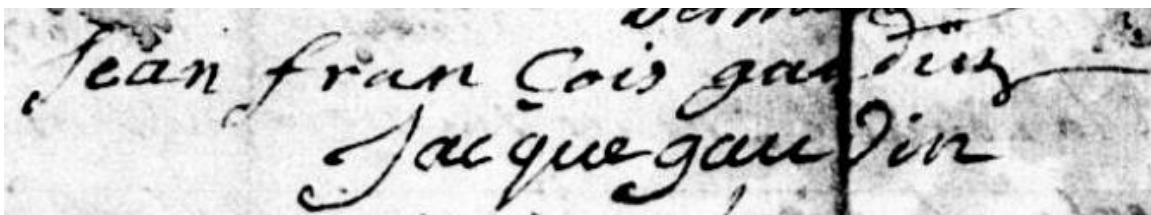 Jean fran çois gaudin
Jacque gaudin